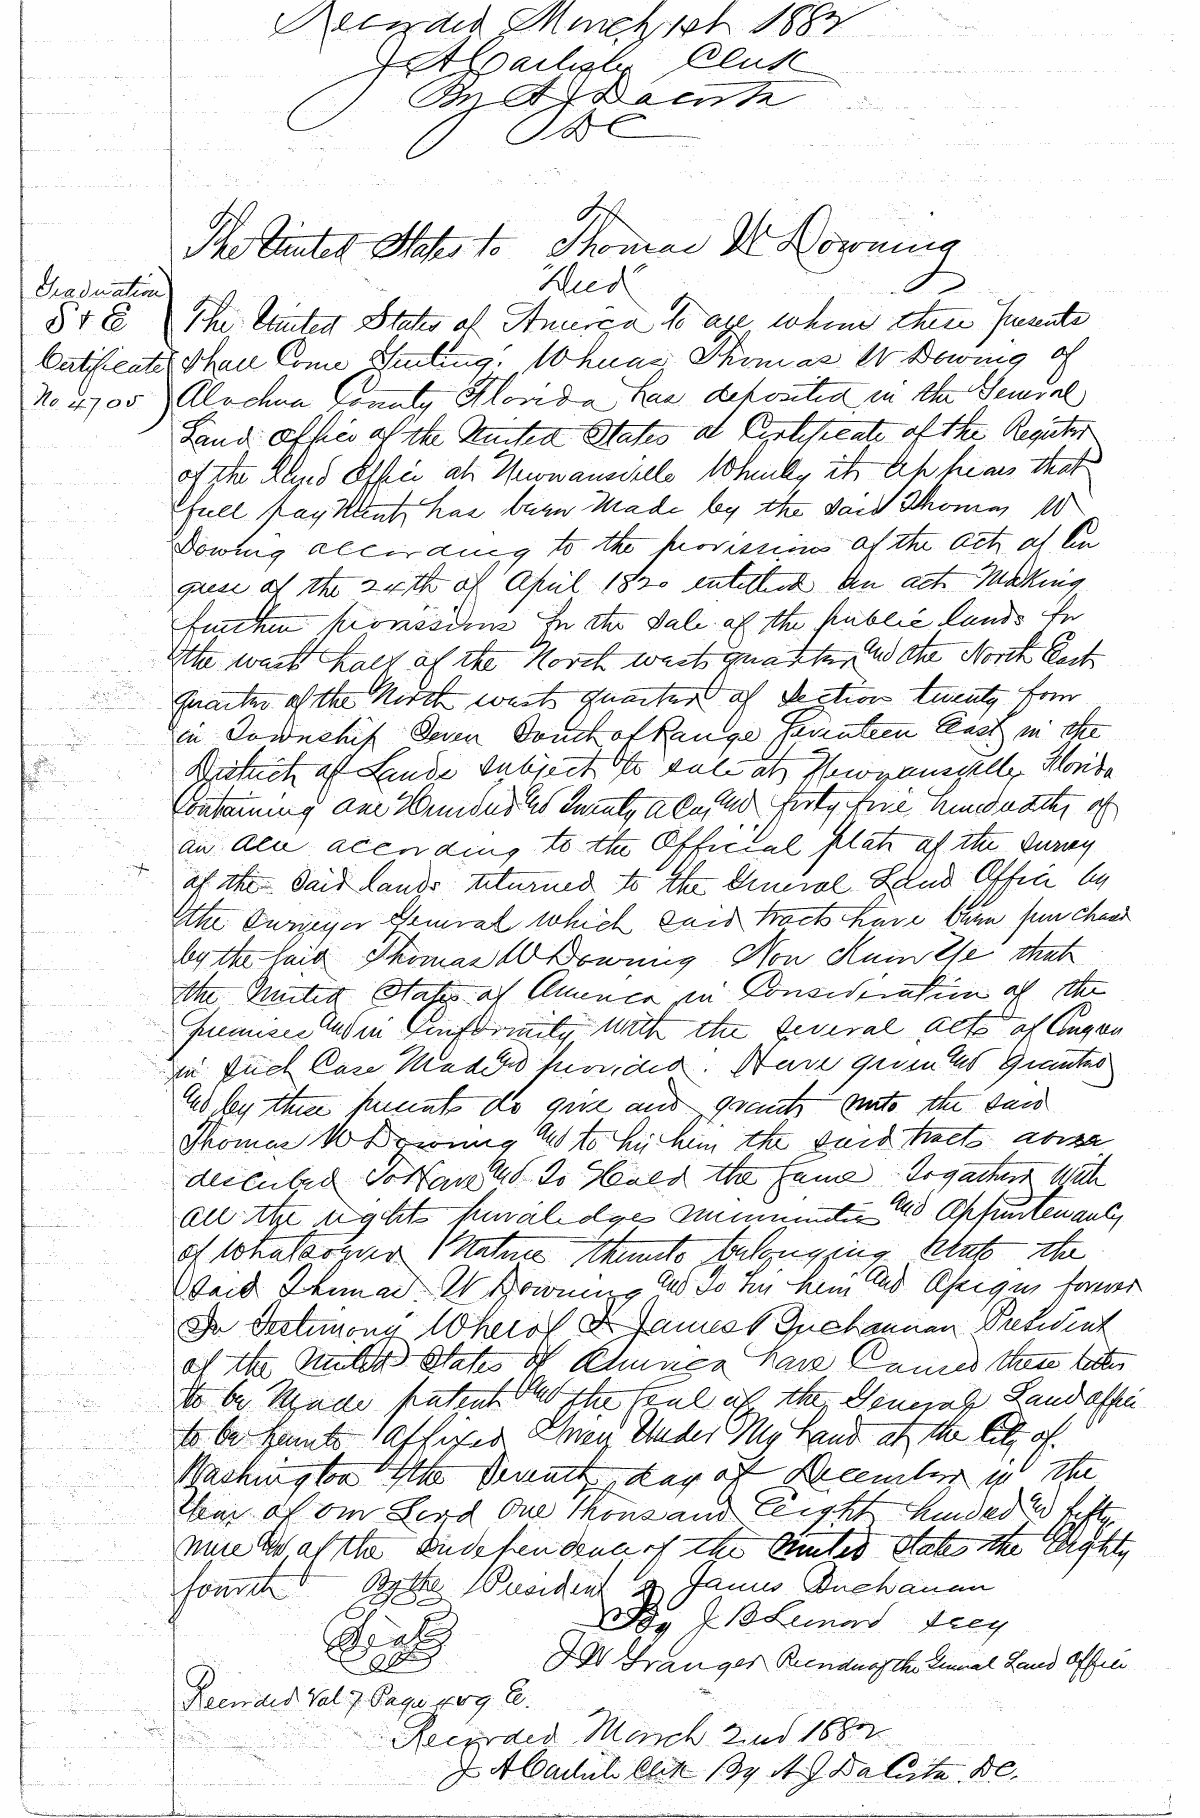 Recorded March 1st 1882
J A Carlisle Clerk
By A J Dacosta
DC
The United States to Thomas W Downing
"Deed"
Graduation
S & E
Certificate
No 4705
The United States of America To all whom these presents
Shall Come Greeting: Whereas Thomas W Downing of
Alachua County Florida has deposited in the General
Land office of the United States a Certificate of the Register
of the Land Office at Newnansville Whereby it appears that
full payment has been Made by the said Thomas W
Downing according to the provissions of the act of Con
gress of the 24th of April 1820 entitled an act Making
further provissions for the Sale of the public lands for
the west half of the North west quarter and the North East
quarter of the North west quarter of Section twenty four
in Township Seven South of Range Seventeen East in the
District of Lands subject to sale at Newnansville Florida
Containing one Hundred and Twenty acres and forty five hundredths of
an acre according to the Official plat of the survey
of the said lands returned to the General Land Office by
the Surveyor General which said tracts have been purchased
by the said Thomas W Downing Now Know Ye that
the United States of America in Consideration of the
premises and in Conformity with the several acts of Congress
in such Case Made and provided. Have given and granted
and by these presents do give and grant unto the said
Thomas W Downing and to his heirs the said tracts above
described To Have and To Hold the same Together with
all the rights priviledges immunities and Appurtenances
of whatsoever Nature thereunto belonging unto the
said Thomas W Downing and To his heirs and Assigns forever
In Testimony Whereof I James Buchannan President
of the United States of America have Caused these letters
to be Made patent and the Seal of the General Land office
to be hereunto Affixed Given Under My hand at the City of
Washington the Seventh day of December in the
Year of our Lord One Thousand Eight hundred and fifty
nine and of the Independence of the United States the Eighty
fourth By the President James Buchanan
By J B Leonard Secy
Seal
J N Granger Recorder of the General Land Office
Recorded Vol 7 Page 409 E.
Recorded March 2nd 1882
J A Carlisle Clerk By A J DaCosta DC.